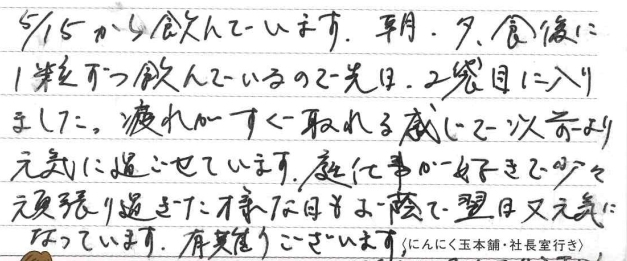 5/15から飲んでいます。朝・夕、食後に
1粒ずつ飲んでいるので先日、2袋目に入り
ました。疲れがすぐ取れる感じで以前より
元気に過ごせています。庭仕事が好きで少々
頑張り過ぎた様な日もお蔭で翌日又元気に
なっています。有難うございます。〈にんにく玉本舗・社長室行き〉